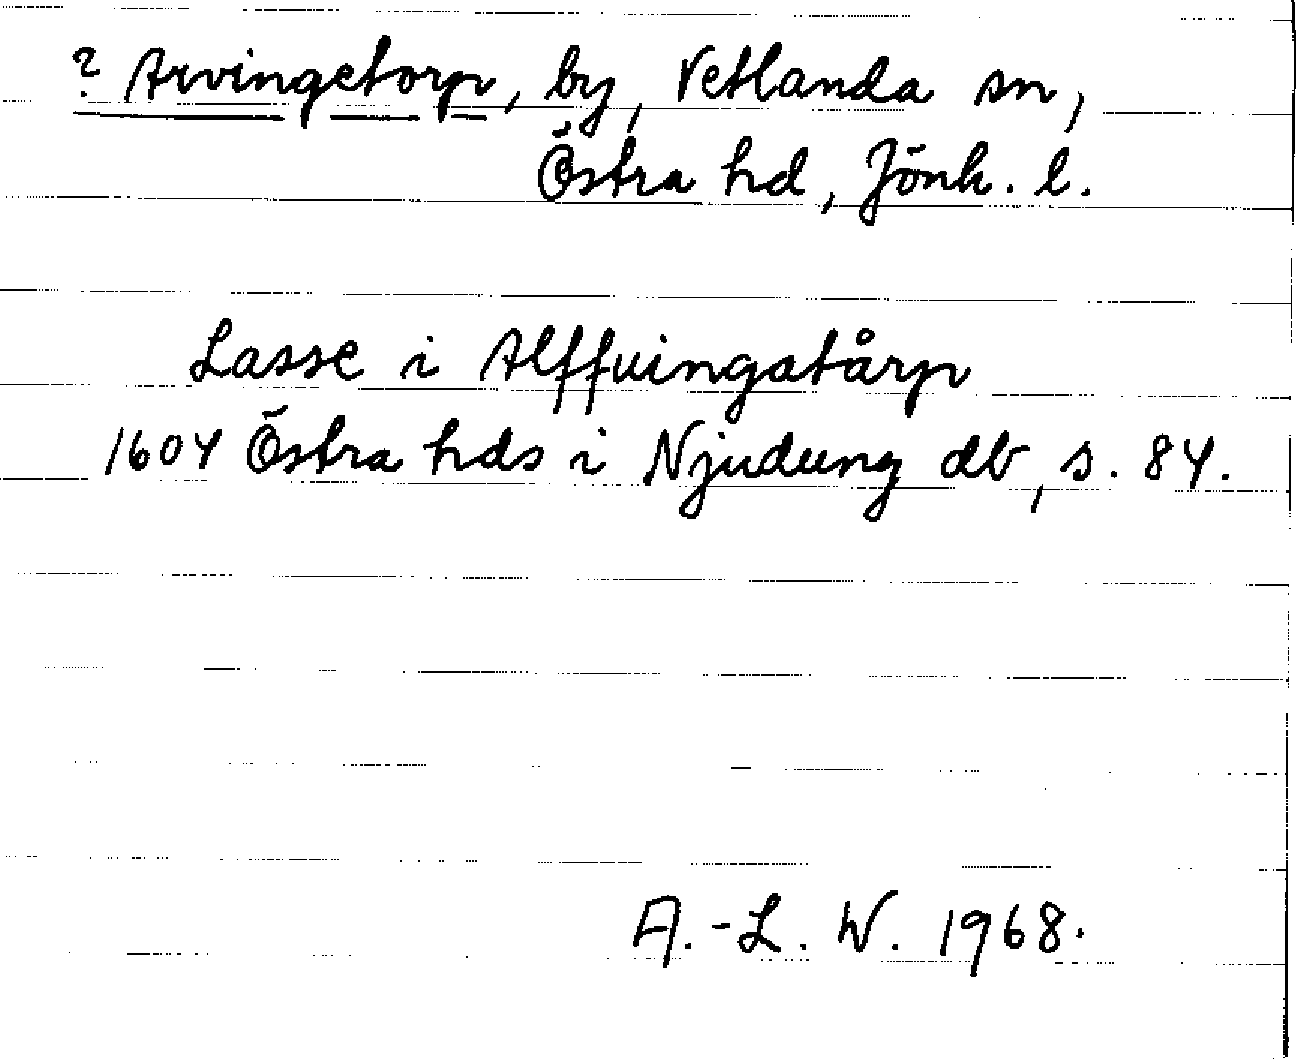 ? Arvingetorp, by, Vetlanda sn,
Östra hd, Jönk. l.
Lasse i Alffuingatårp
1604 Östra hds i Njudung db, s. 84.
A.-L. W. 1968.